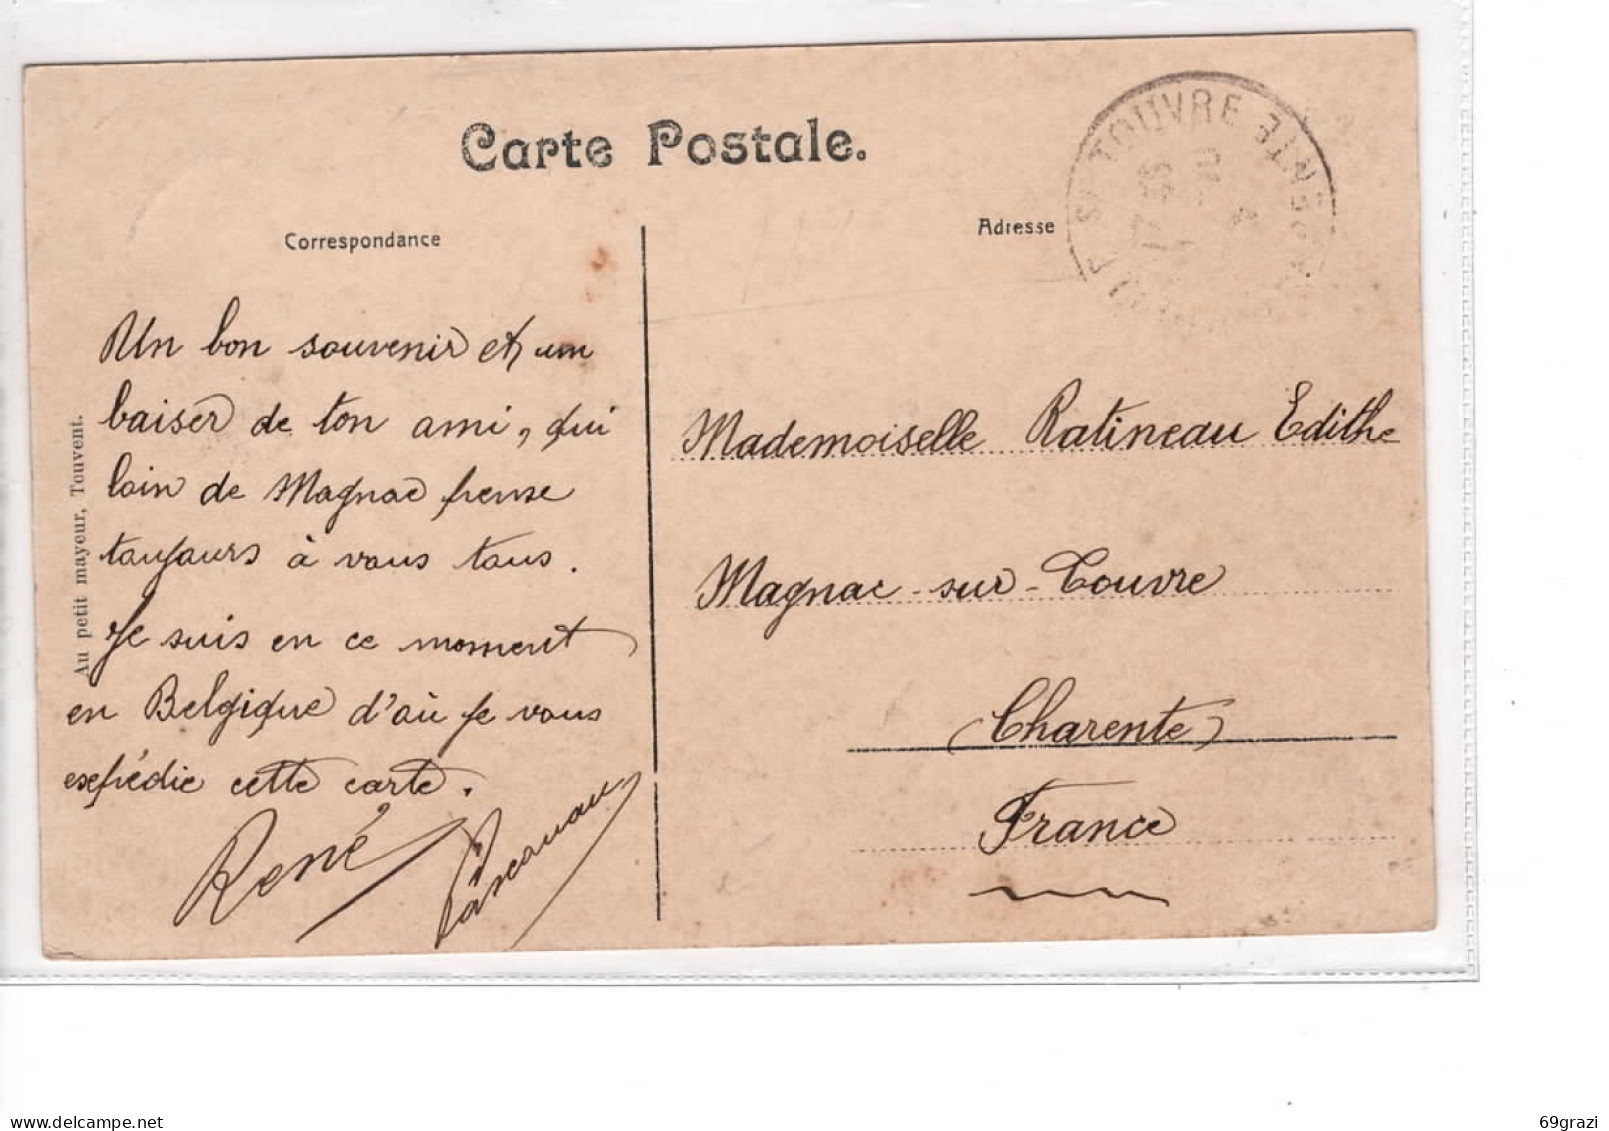 Carte Postale.
Correspondance
Adresse
S/ TOUVRE
Un bon souvenir et un
baiser de ton ami, qui
loin de Magnac pense
toujours à vous tous.
Je suis en ce moment
en Belgique d'où je vous
expédie cette carte.
René
Au petit mayeur, Touvent.
Mademoiselle Ratineau Edithe
Magnac-sur-Touvre
(Charente)
France
www.delcampe.net
69grazi